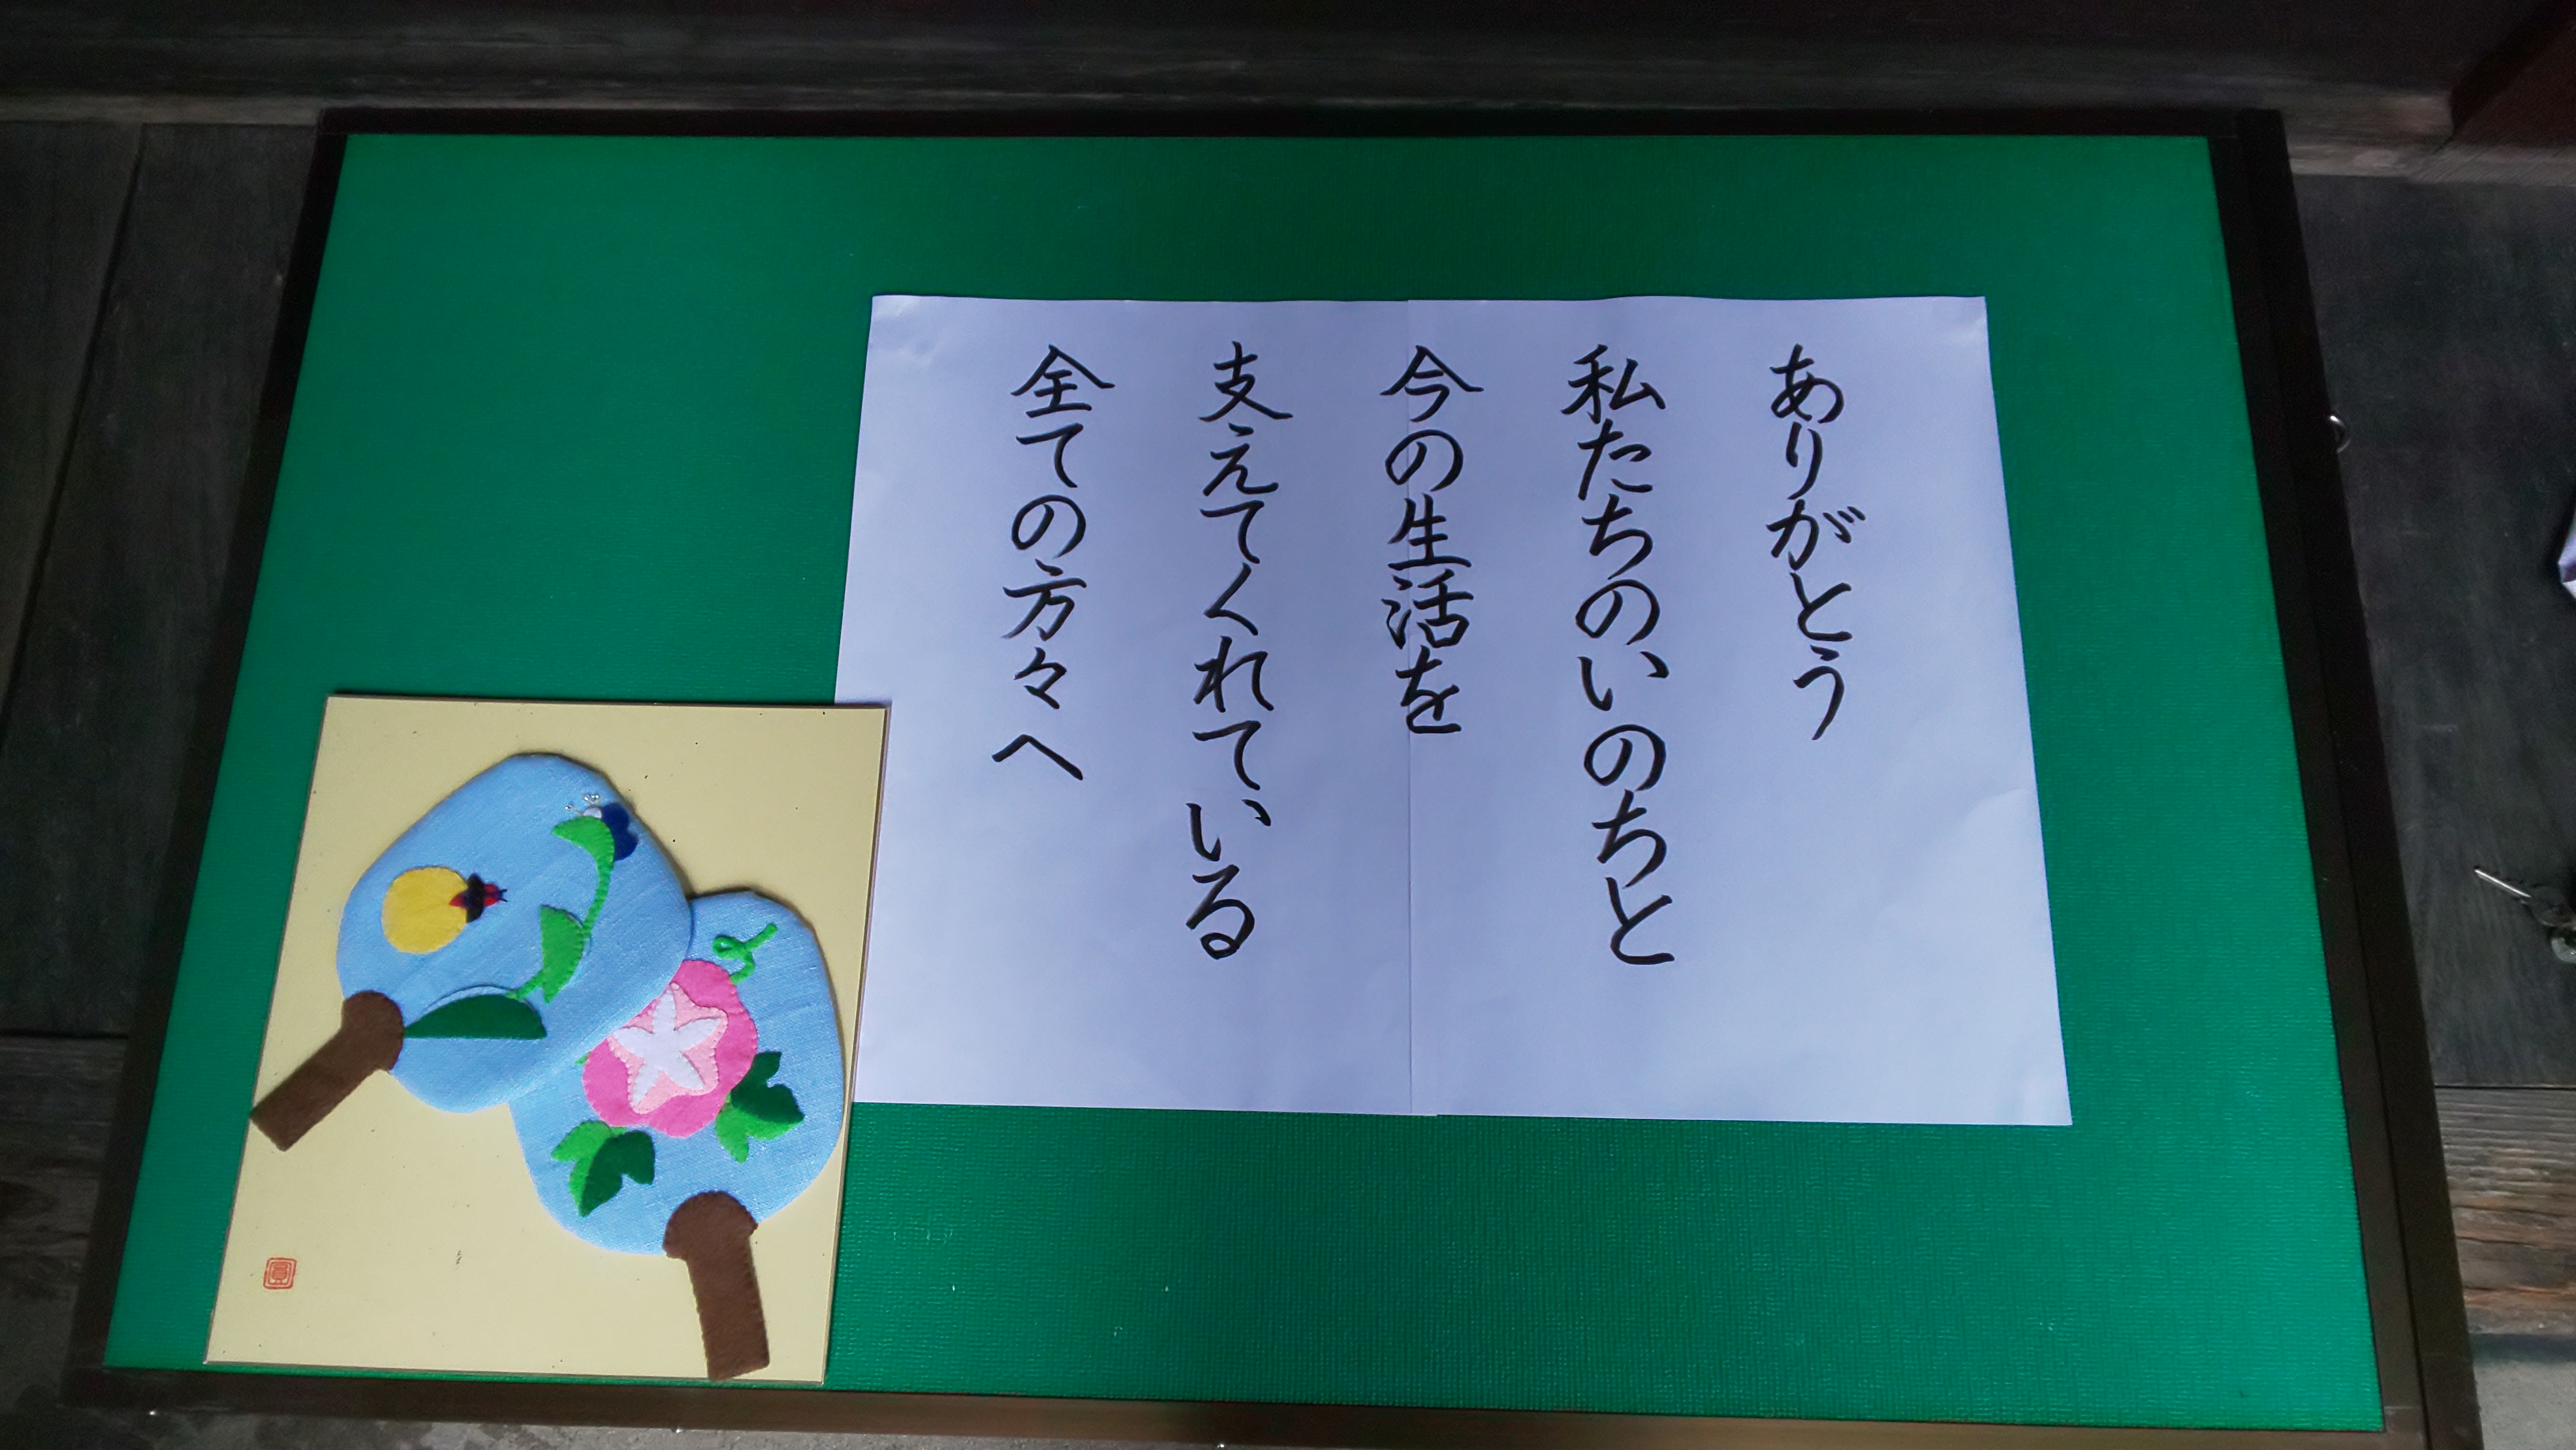 ありがとう
私たちのいのちと
今の生活を
支えてくれている
全ての方々へ